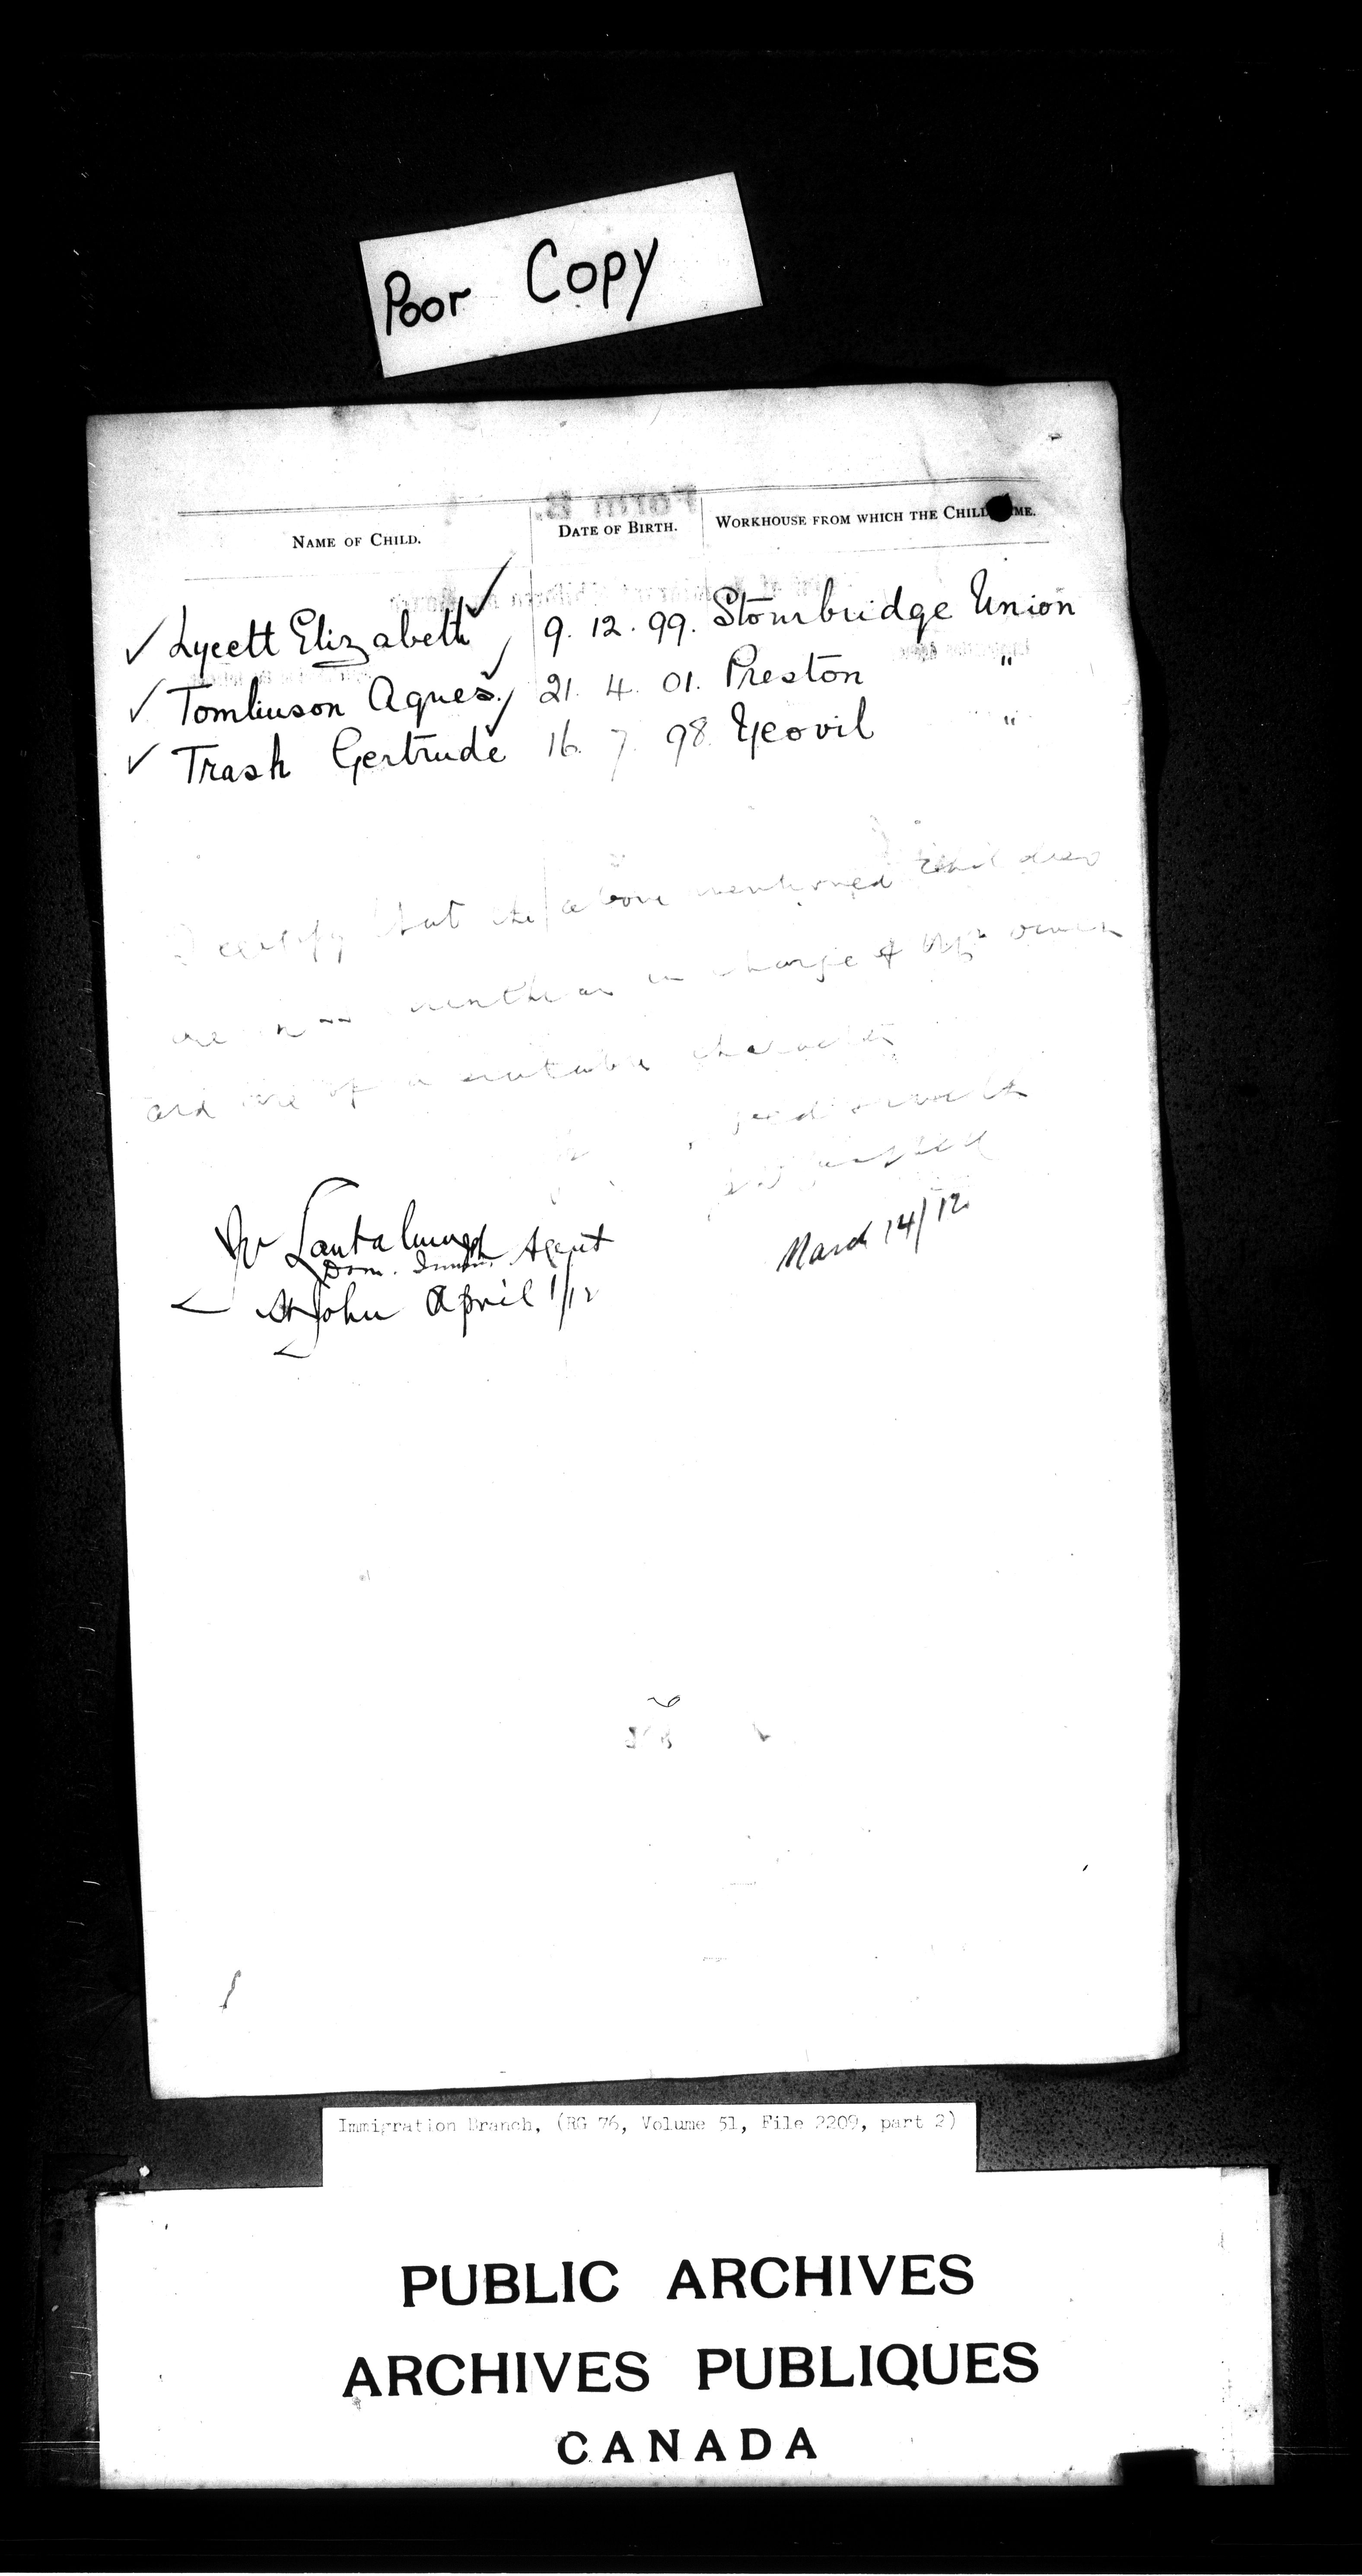 Poor Copy
NAME OF CHILD. DATE OF BIRTH. WORKHOUSE FROM WHICH THE CHILD ME.
✓ Lycett Elizabeth ✓ 9. 12. 99. Stourbridge Union
✓ Tomlinson Agnes. ✓ 21. 4. 01. Preston "
✓ Trash Gertrude 16. 7. 98. Yeovil "
I certify that the above mentioned children
are in charge of
and are of a suitable character
March 14/12
Lantalum
Dom. Immgn. Agent
St John April 1/12
Immigration Branch, (RG 76, Volume 51, File 2209, part 2)
PUBLIC ARCHIVES
ARCHIVES PUBLIQUES
CANADA